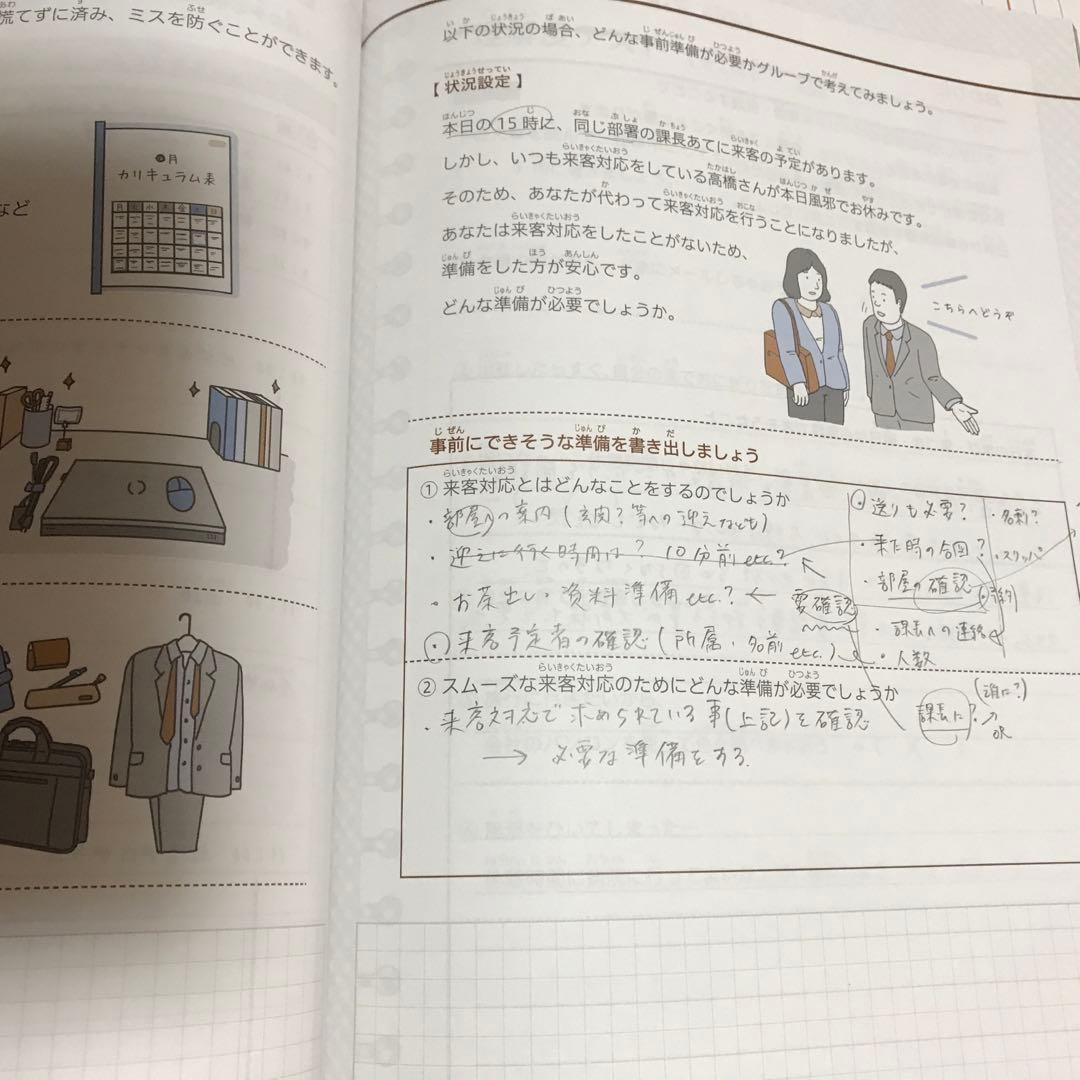 慌てずに済み、ミスを防ぐことができます。
●月
カリキュラム表
月 火 水 木 金 土 日
など
以下の状況の場合、どんな事前準備が必要かグループで考えてみましょう。
【状況設定】
本日の15時に、同じ部署の課長あてに来客の予定があります。
しかし、いつも来客対応をしている高橋さんが本日風邪でお休みです。
そのため、あなたが代わって来客対応を行うことになりましたが、
あなたは来客対応をしたことがないため、
準備をした方が安心です。
どんな準備が必要でしょうか。
こちらへどうぞ
事前にできそうな準備を書き出しましょう
① 来客対応とはどんなことをするのでしょうか
・部屋への案内(玄関?等への迎えなども)
・迎えに行く時間は? 10分前etc?
・お茶出し・資料準備etc.? ← 要確認
・来客予定者の確認(所属・名前etc.)
・送りも必要?
・来た時の合図?
・部屋の確認 予約
・課長への連絡
・人数
・名刺?
・スリッパ
② スムーズな来客対応のためにどんな準備が必要でしょうか
・来客対応で求められている事(上記)を確認
→ 必要な準備をする.
課長に? (誰に?)
OR